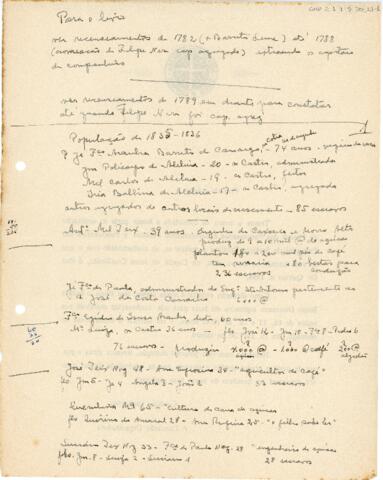 Para o livro
ver recenseamentos de 1782 (+ Barreto Leme) até 1788
(nomeação de Felipe Neri cap agregado) extraindo os capitães
de companhia
ver recenseamentos de 1789 em diante para constatar
até quando Felipe Neri foi cap. agreg
População de 1835-1836
Pe Je Fco Aranha Barreto de Camargo, - 74 anos -
Jm Policarpo de Aleluia - 20 - os Castro, administrador
Mel Carlos de Aleluia - 19 - os Castro, feitor
Iria Balbina de Aleluia - 17 - os Castro, agregada
outros agregados de outros locais de nascimento - 85 escravos
Anto Mel Teix - 39 anos. Engenho de Cachoeira e Morro Alto
produz 9 a 10 mil @ de açúcar
plantou 180 a 200 mil pés de café
tem olaria - 80 bestas para
condução
236 escravos
Je Fco de Paula, administrador do Engo Sto Antonio pertencente ao
a José da Costa Carvalho 6000 @
Fco Egidio de Sousa Aranha, 60 anos
Ma Luiza, os Castro 36 anos - flo José 16 - Jm 10 - Fco 8 - Pedro 6
76 escravos - produziu 4.000 @ - 1.000 @ café 200 @
algodão
José Teix Nog 48 - Ana Eufrosina 34 - "agricultor de café"
flo Jm 5 - Je 4 Angela 3 - José 2 53 escravos
65 - "cultura de cana de açucar
flo Querino do Amaral 28 - Ana Rufina 25 - "o filho sabe ler"
Luciano Teix Nog 33 - Fca de Paula Nog. 28 "engenheiro de açúcar
flo. Jm 8 - Luiza 2 - Luciano 1 28 escravos